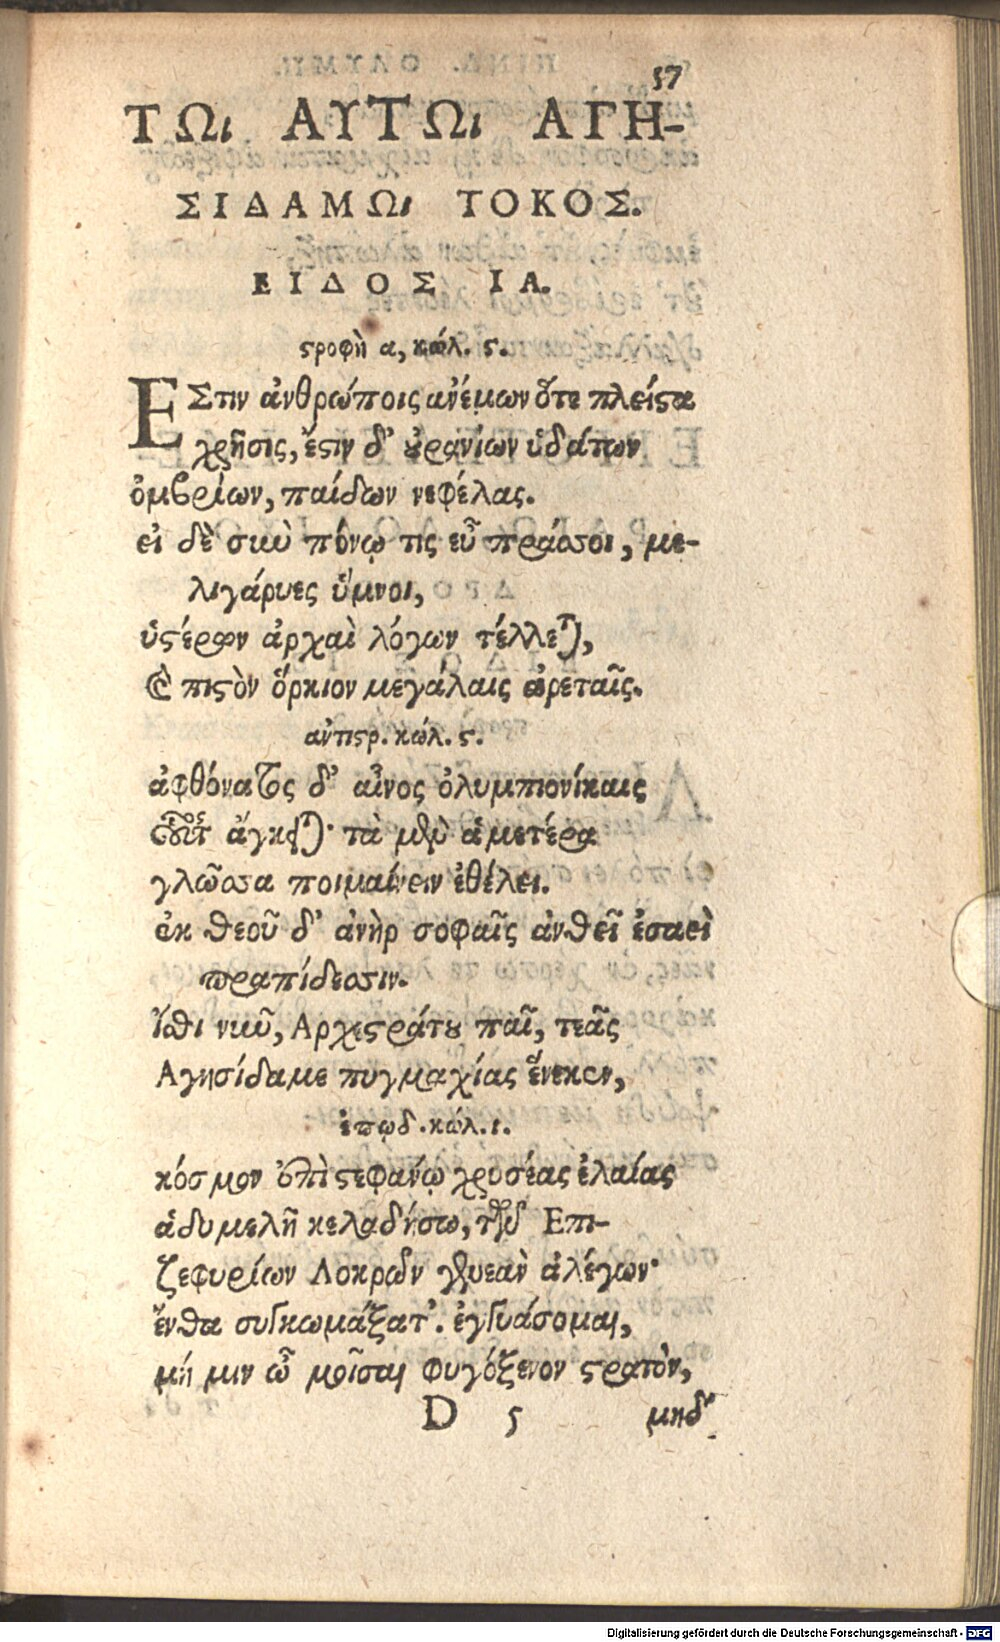 57
ΤΩι ΑΥΤΩι ΑΓΗ-
ΣΙΔΑΜΩι ΤΟΚΟΣ.
ΕΙΔΟΣ ΙΑ.
ϛροφὴ α, κώλ. ϛ.
ΕΣτιν ἀνθρώποις ἀνέμων ὅτε πλείϛα
χρῆσις, ἔϛιν δ' ȣ̓ρανίων ὑδάτων
ὀμβρίων, παίδων νεφέλας.
εἰ δὲ σιωὺ πόνῳ τις εὖ πράσσοι, με-
λιγάρυες ὕμνοι,
ὑϛέρων ἀρχαὶ λόγων τέλλεται,
καὶ πιϛὸν ὅρκιον μεγάλαις ἀρεταῖς.
ἀντιϛρ. κώλ. ϛ.
ἀφθόνατος δ' αἶνος ὀλυμπιονίκαις
οὗτος ἄγκειται· τὰ μὲν ἁμετέρα
γλῶσσα ποιμαίνειν ἐθέλει.
ἐκ θεοῦ δ' ἀνὴρ σοφαῖς ἀνθεῖ ἐσαεὶ
πραπίδεσσιν.
Ἴσθι νιωῦ, Αρχεϛράτȣ παῖ, τεᾶς
Αγησίδαμε πυγμαχίας ἕνεκεν,
ἐπῳδ. κώλ. ι.
κόσμον ἐπὶ ϛεφάνῳ χρυσέας ἐλαίας
ἁδυμελῆ κελαδήσω, τῶν Επι-
ζεφυρίων Λοκρῶν γενεὰν ἀλέγων·
ἔνθα συγκωμάξατ'. ἐγγυάσομαι,
μή μιν ὦ μοῖσαι φυγόξενον ϛρατὸν,
D 5 μηδ'
Digitalisierung gefördert durch die Deutsche Forschungsgemeinschaft - DFG